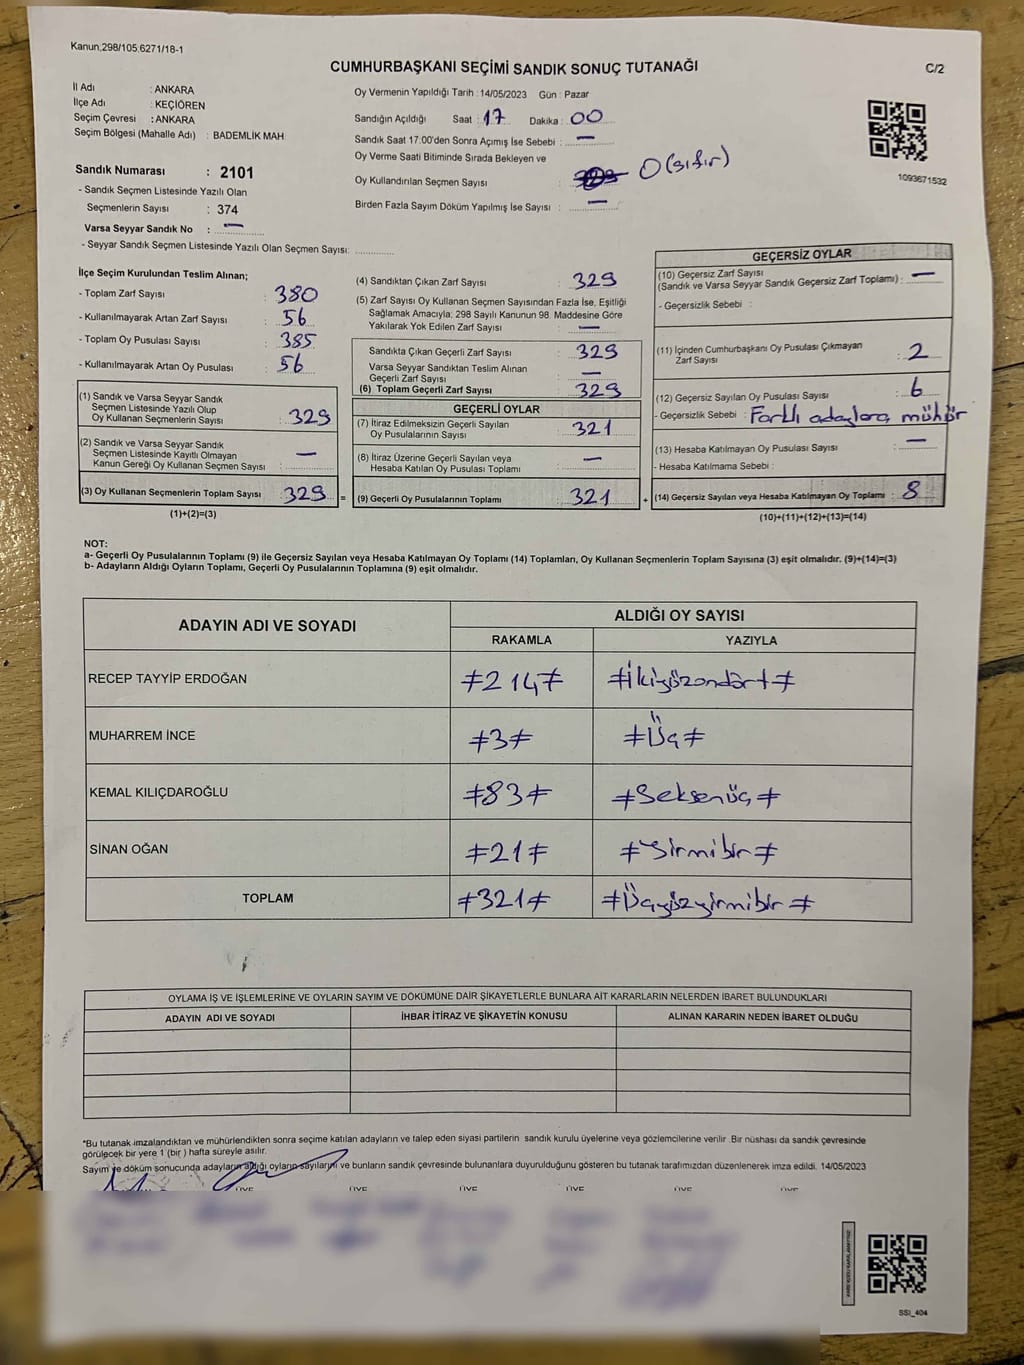 Kanun,298/105,6271/18-1
CUMHURBAŞKANI SEÇİMİ SANDIK SONUÇ TUTANAĞI
C/2
İl Adı : ANKARA
İlçe Adı : KEÇİÖREN
Seçim Çevresi : ANKARA
Seçim Bölgesi (Mahalle Adı) : BADEMLİK MAH
Sandık Numarası : 2101
- Sandık Seçmen Listesinde Yazılı Olan
Seçmenlerin Sayısı : 374
Varsa Seyyar Sandık No : —
- Seyyar Sandık Seçmen Listesinde Yazılı Olan Seçmen Sayısı:
Oy Vermenin Yapıldığı Tarih : 14/05/2023 Gün : Pazar
Sandığın Açıldığı Saat : 17 Dakika : 00
Sandık Saat 17.00'den Sonra Açımış İse Sebebi : —
Oy Verme Saati Bitiminde Sırada Bekleyen ve
Oy Kullandırılan Seçmen Sayısı : 0 (sıfır)
Birden Fazla Sayım Döküm Yapılmış İse Sayısı : —
1093671532
İlçe Seçim Kurulundan Teslim Alınan;
- Toplam Zarf Sayısı : 380
- Kullanılmayarak Artan Zarf Sayısı : 56
- Toplam Oy Pusulası Sayısı : 385
- Kullanılmayarak Artan Oy Pusulası : 56
(1) Sandık ve Varsa Seyyar Sandık
Seçmen Listesinde Yazılı Olup
Oy Kullanan Seçmenlerin Sayısı : 329
(2) Sandık ve Varsa Seyyar Sandık
Seçmen Listesinde Kayıtlı Olmayan
Kanun Gereği Oy Kullanan Seçmen Sayısı : —
(3) Oy Kullanan Seçmenlerin Toplam Sayısı : 329 =
(1)+(2)=(3)
(4) Sandıktan Çıkan Zarf Sayısı : 329
(5) Zarf Sayısı Oy Kullanan Seçmen Sayısından Fazla İse, Eşitliği
Sağlamak Amacıyla; 298 Sayılı Kanunun 98. Maddesine Göre
Yakılarak Yok Edilen Zarf Sayısı : —
Sandıkta Çıkan Geçerli Zarf Sayısı : 329
Varsa Seyyar Sandıktan Teslim Alınan
Geçerli Zarf Sayısı : —
(6) Toplam Geçerli Zarf Sayısı : 329
GEÇERLİ OYLAR
(7) İtiraz Edilmeksizin Geçerli Sayılan
Oy Pusulalarının Sayısı : 321
(8) İtiraz Üzerine Geçerli Sayılan veya
Hesaba Katılan Oy Pusulası Toplamı : —
(9) Geçerli Oy Pusulalarının Toplamı : 321 +
GEÇERSİZ OYLAR
(10) Geçersiz Zarf Sayısı
(Sandık ve Varsa Seyyar Sandık Geçersiz Zarf Toplamı) : —
- Geçersizlik Sebebi :
(11) İçinden Cumhurbaşkanı Oy Pusulası Çıkmayan
Zarf Sayısı : 2
(12) Geçersiz Sayılan Oy Pusulası Sayısı : 6
- Geçersizlik Sebebi : Farklı adaylara mühür
(13) Hesaba Katılmayan Oy Pusulası Sayısı : —
- Hesaba Katılmama Sebebi :
(14) Geçersiz Sayılan veya Hesaba Katılmayan Oy Toplamı : 8
(10)+(11)+(12)+(13)=(14)
NOT:
a- Geçerli Oy Pusulalarının Toplamı (9) ile Geçersiz Sayılan veya Hesaba Katılmayan Oy Toplamı (14) Toplamları, Oy Kullanan Seçmenlerin Toplam Sayısına (3) eşit olmalıdır. (9)+(14)=(3)
b- Adayların Aldığı Oyların Toplamı, Geçerli Oy Pusulalarının Toplamına (9) eşit olmalıdır.
ADAYIN ADI VE SOYADI ALDIĞI OY SAYISI
RAKAMLA YAZIYLA
RECEP TAYYİP ERDOĞAN ≠214≠ ≠İkiyüzondört≠
MUHARREM İNCE ≠3≠ ≠Üç≠
KEMAL KILIÇDAROĞLU ≠83≠ ≠Seksenüç≠
SİNAN OĞAN ≠21≠ ≠Yirmibir≠
TOPLAM ≠321≠ ≠Üçyüzyirmibir≠
OYLAMA İŞ VE İŞLEMLERİNE VE OYLARIN SAYIM VE DÖKÜMÜNE DAİR ŞİKAYETLERLE BUNLARA AİT KARARLARIN NELERDEN İBARET BULUNDUKLARI
ADAYIN ADI VE SOYADI İHBAR İTİRAZ VE ŞİKAYETİN KONUSU ALINAN KARARIN NEDEN İBARET OLDUĞU
*Bu tutanak imzalandıktan ve mühürlendikten sonra seçime katılan adayların ve talep eden siyasi partilerin sandık kurulu üyelerine veya gözlemcilerine verilir. Bir nüshası da sandık çevresinde
görülecek bir yere 1 (bir) hafta süreyle asılır.
Sayım ve döküm sonucunda adayların aldığı oyların sayılarını ve bunların sandık çevresinde bulunanlara duyurulduğunu gösteren bu tutanak tarafımızdan düzenlenerek imza edildi. 14/05/2023
ÜYE ÜYE ÜYE ÜYE ÜYE ÜYE
SSI_404